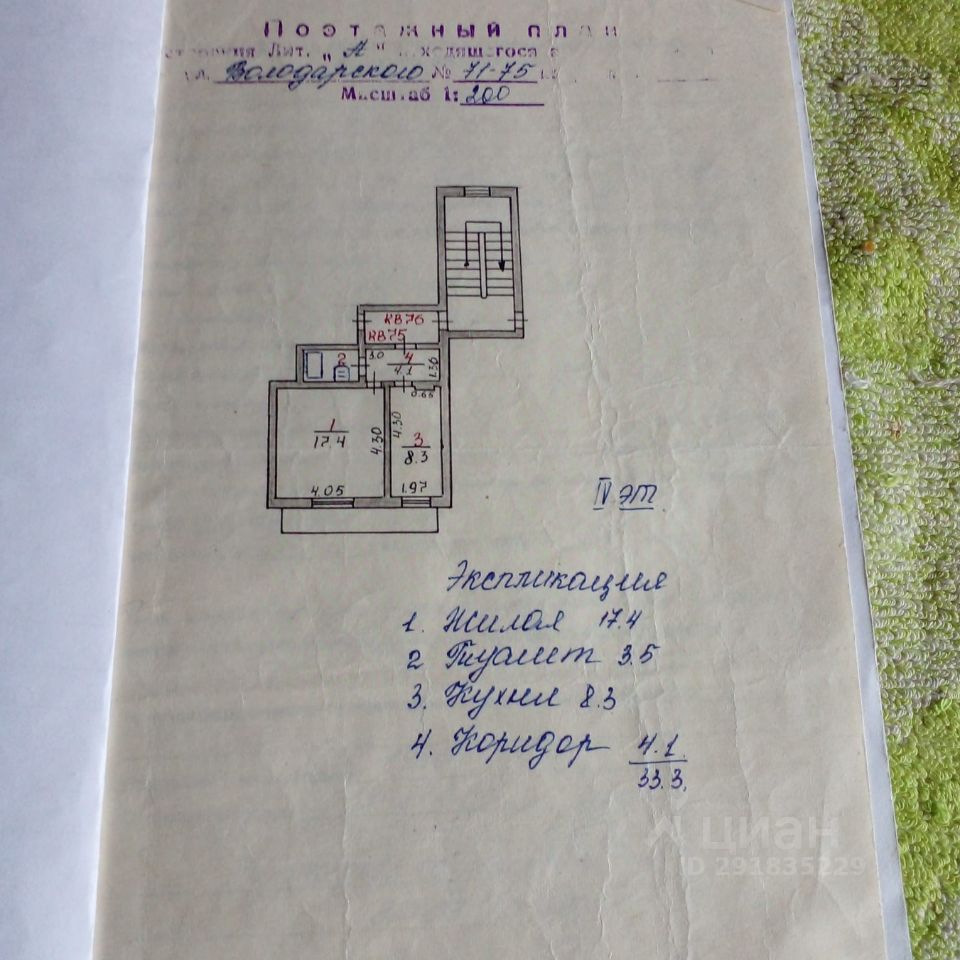 Поэтажный план
Лит. „А"
Володарского № 71-75
Масштаб 1: 200
КВ76
КВ75
2
3.0
4
4.1
1.30
0.65
1
17.4
4.30
4.30
3
8.3
4.05
1.97
IV эт.
Экспликация
1. Жилая 17.4
2 Туалет 3.5
3. Кухня 8.3
4. Коридор 4.1.
33.3.
циан
ID 291835229